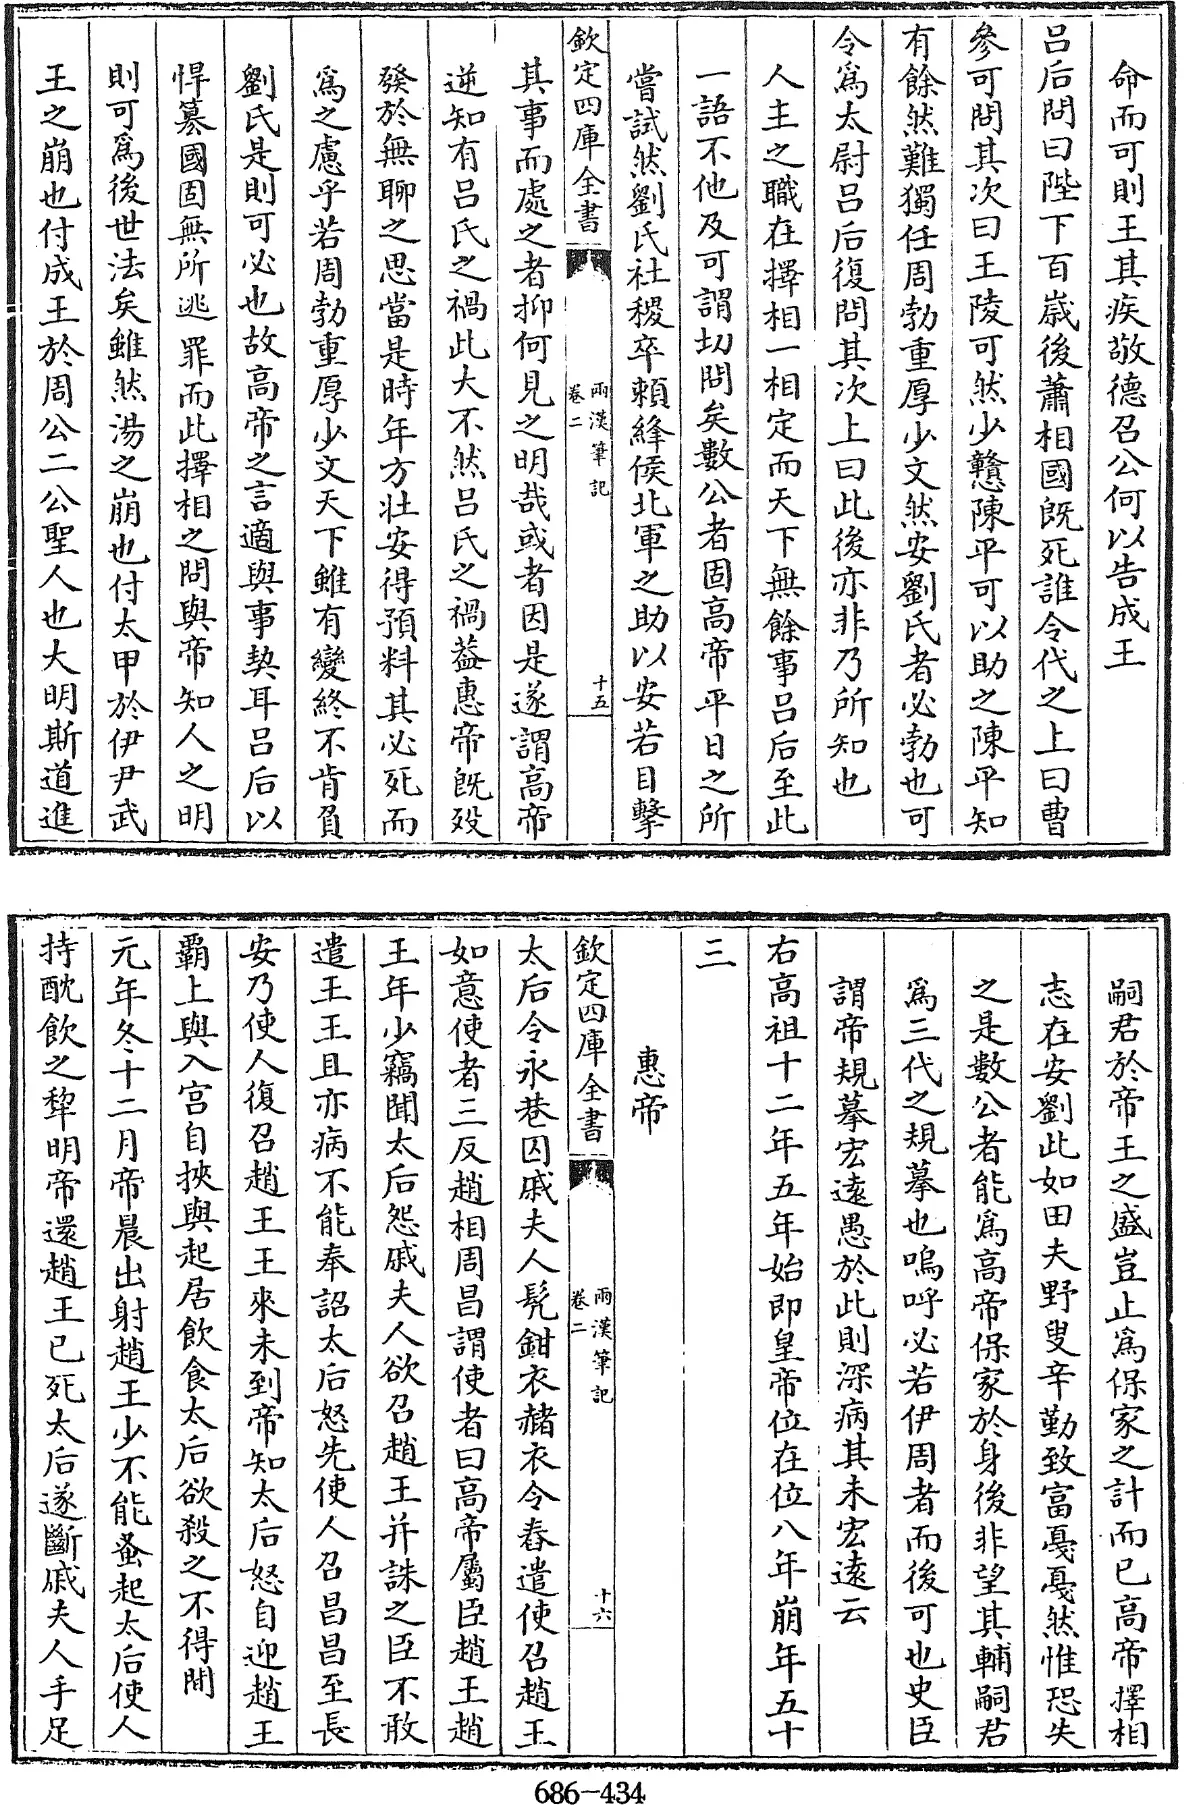 命而可則王其疾敬德召公何以告成王
呂后問曰陛下百嵗後蕭相國既死誰令代之上曰曹
參可問其次曰王陵可然少戇陳平可以助之陳平知
有餘然難獨任周勃重厚少文然安劉氏者必勃也可
令為太尉呂后復問其次上曰此後亦非乃所知也
人主之職在擇相一相定而天下無餘事呂后至此
一語不他及可謂切問矣數公者固高帝平日之所
嘗試然劉氏社稷卒賴絳侯北軍之助以安若目擊
欽定四庫全書
兩漢筆記
卷二
十五
其事而處之者抑何見之明哉或者因是遂謂高帝
逆知有呂氏之禍此大不然呂氏之禍葢惠帝既歿
發於無聊之思當是時年方壯安得預料其必死而
為之慮乎若周勃重厚少文天下雖有變終不肯負
劉氏是則可必也故高帝之言適與事契耳呂后以
悍簒國固無所逃罪而此擇相之問與帝知人之明
則可為後世法矣雖然湯之崩也付太甲於伊尹武
王之崩也付成王於周公二公聖人也大明斯道進
嗣君於帝王之盛豈止為保家之計而已高帝擇相
志在安劉此如田夫野叟辛勤致富戞戞然惟恐失
之是數公者能為高帝保家於身後非望其輔嗣君
為三代之規摹也嗚呼必若伊周者而後可也史臣
謂帝規摹宏遠愚於此則深病其未宏遠云
右高祖十二年五年始即皇帝位在位八年崩年五十
三
惠帝
欽定四庫全書
兩漢筆記
卷二
十六
太后令永巷囚戚夫人髠鉗衣赭衣令舂遣使召趙王
如意使者三反趙相周昌謂使者曰高帝屬臣趙王趙
王年少竊聞太后怨戚夫人欲召趙王并誅之臣不敢
遣王王且亦病不能奉詔太后怒先使人召昌昌至長
安乃使人復召趙王王來未到帝知太后怒自迎趙王
霸上與入宮自挾與起居飲食太后欲殺之不得間
元年冬十二月帝晨出射趙王少不能蚤起太后使人
持酖飲之犂明帝還趙王已死太后遂斷戚夫人手足
686-434